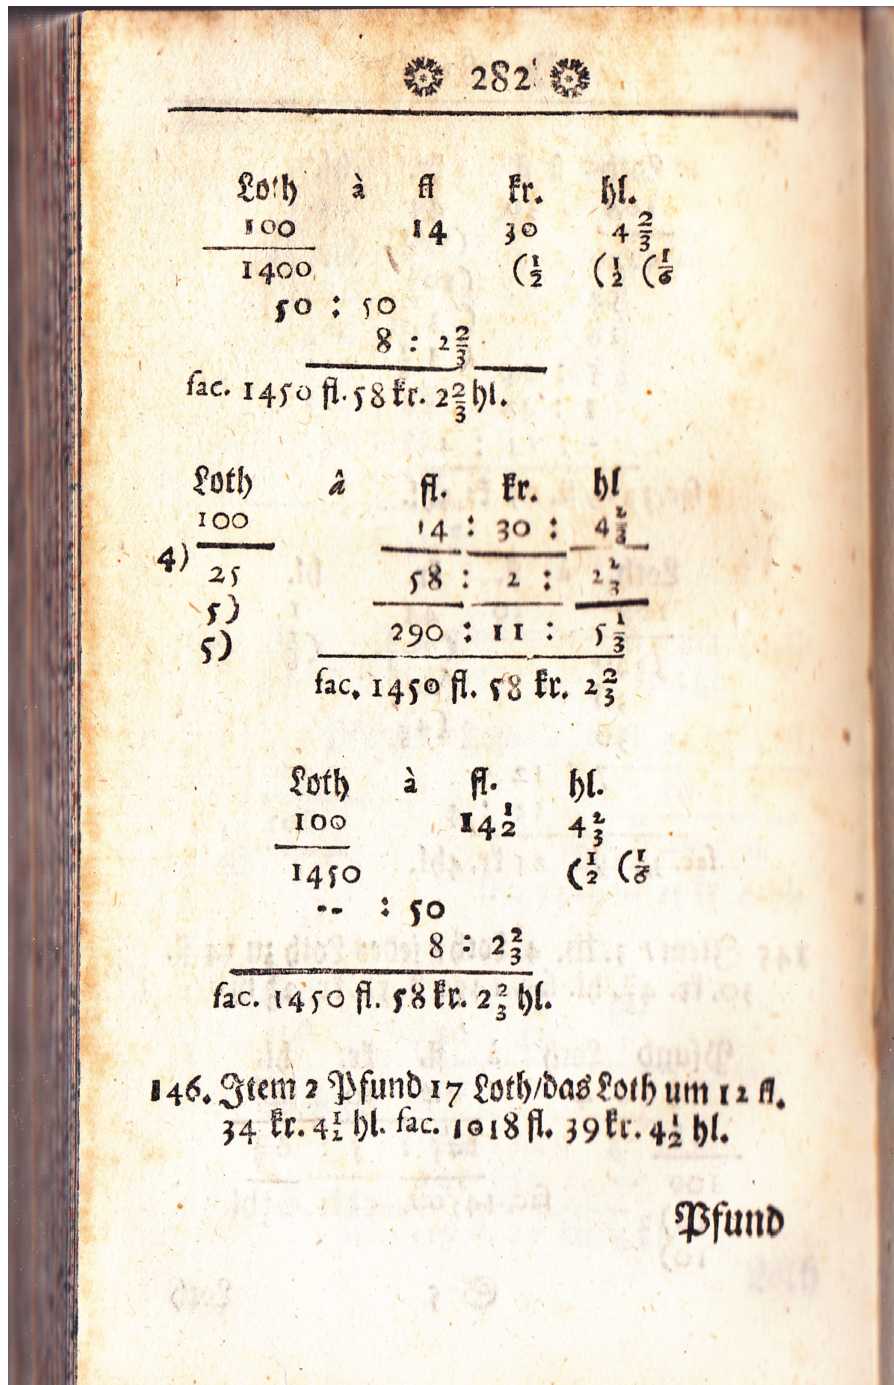 282
Loth à fl kr. hl.
100 14 30 4 2/3
1400 (1/2 (1/2 (1/6
50 : 50
8 : 2 2/3
fac. 1450 fl. 58 kr. 2 2/3 hl.
Loth â fl. kr. hl
100 14 : 30 : 4 2/3
4) 25 58 : 2 : 2 2/3
5) 290 : 11 : 5 1/3
5)
fac. 1450 fl. 58 kr. 2 2/3
Loth à fl. hl.
100 14 1/2 4 2/3
1450 (1/2 (1/6
-- : 50
8 : 2 2/3
fac. 1450 fl. 58 kr. 2 2/3 hl.
146. Item 2 Pfund 17 Loth/das Loth um 12 fl.
34 kr. 4 1/2 hl. fac. 1018 fl. 39 kr. 4 1/2 hl.
Pfund